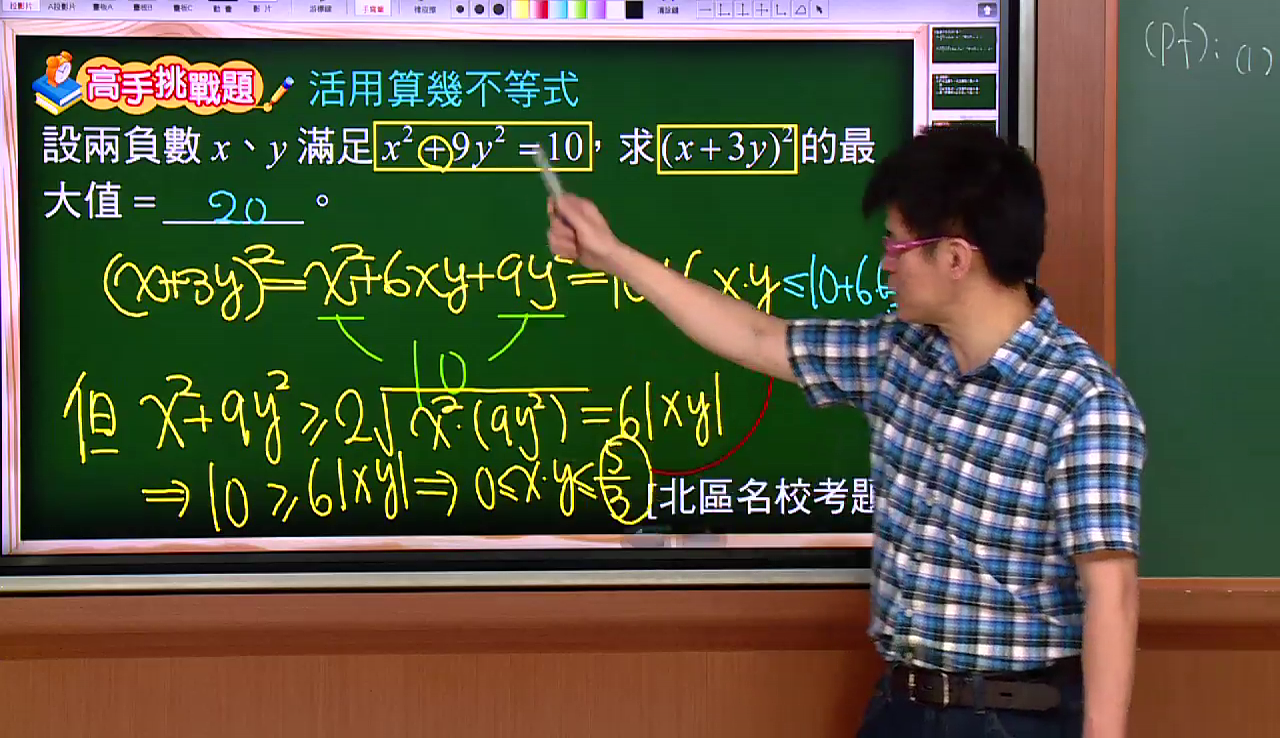 高手挑戰題 活用算幾不等式
設兩負數 x、y 滿足 x²+9y²=10，求 (x+3y)² 的最
大值 = 20 。
(x+3y)²=x²+6xy+9y²=10+6x·y≤10+6
10
但 x²+9y²≥2√x²·(9y²)=6|xy|
⇒10≥6|xy|⇒0≤x·y≤5/3
[北區名校考題
(pf): (1)